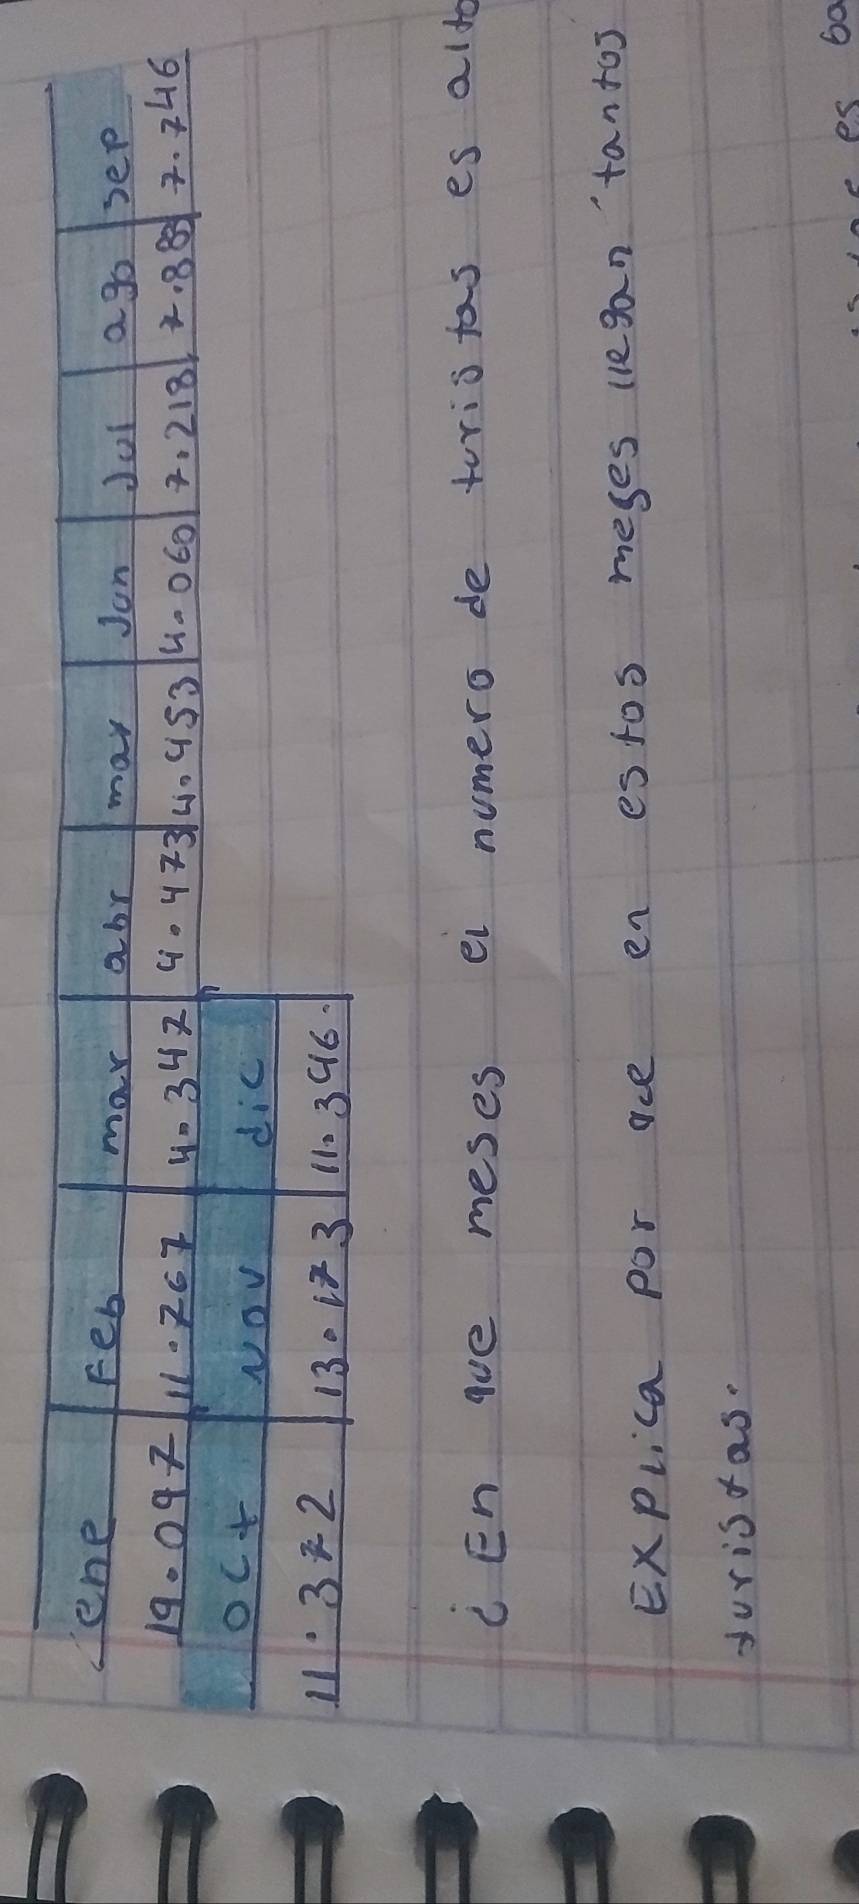 ene Feb mar abr may Jun Jul ago sep
19.097 11.767 4.347 4.473 4.453 4.060 7.218 7.889 7.746
oct nov dic
11.372 13.173 11.346.
¿ En que meses el numero de turistas es alto
Explica por que en estos meses llegan tantos
turistas.
es ba